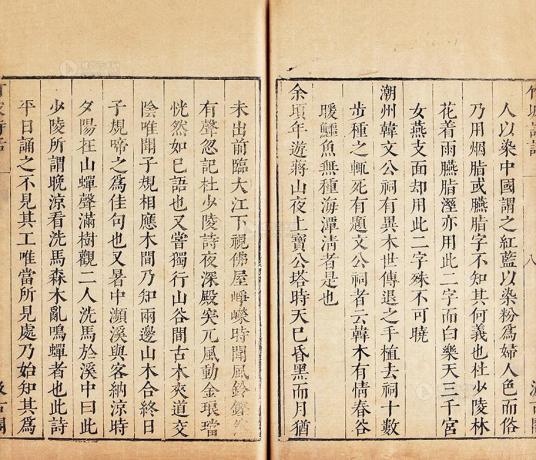 人以染中國謂之紅藍以染粉爲婦人色而俗
乃用烟脂或臙脂字不知其何義也杜少陵林
花着雨臙脂溼亦用此二字而白樂天三千宮
女燕支面却用此二字殊不可曉
潮州韓文公祠有異木世傳退之手植去祠十數
步種之輒死有題文公祠者云韓木有情春谷
暖鱷魚無種海潭清者是也
余頃年遊蔣山夜上寶公塔時天已昏黑而月猶
未出前臨大江下視佛屋崢嶸時聞風鈴鏗然
有聲忽記杜少陵詩夜深殿突兀風動金琅璫
恍然如已語也又嘗獨行山谷間古木夾道交
陰唯聞子規相應木間乃知兩邊山木合終日
子規啼之爲佳句也又暑中瀕溪與客納涼時
夕陽在山蟬聲滿樹觀二人洗馬於溪中曰此
少陵所謂晚涼看洗馬森木亂鳴蟬者也此詩
平日誦之不見其工唯當所見處乃始知其爲